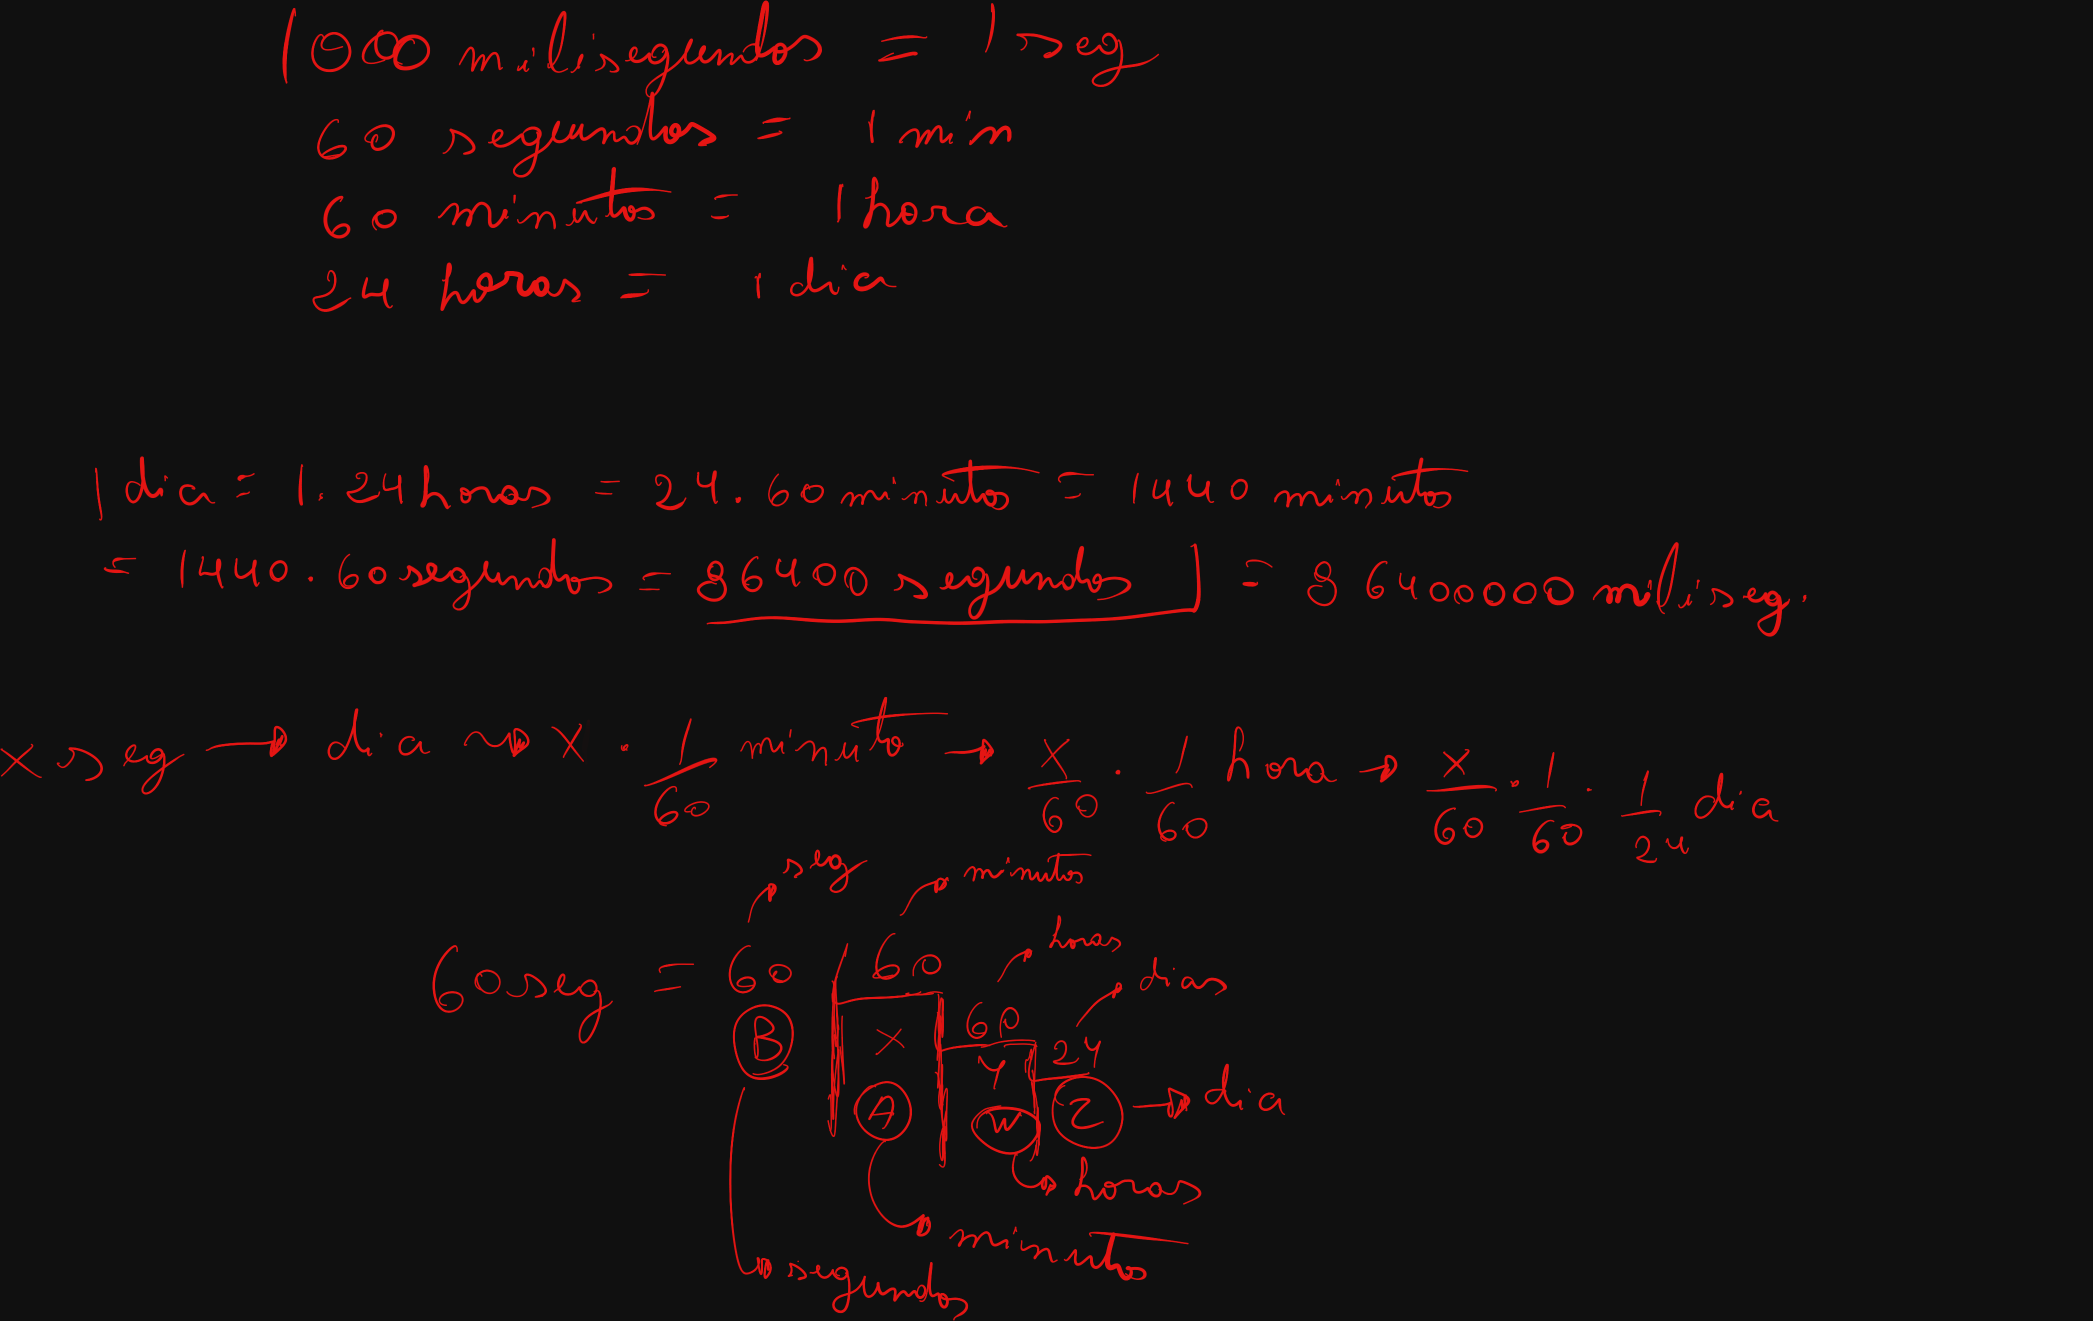 1000 milisegundos = 1 seg
60 segundos = 1 min
60 minutos = 1 hora
24 horas = 1 dia
1 dia = 1.24 horas = 24.60 minutos = 1440 minutos
= 1440.60 segundos = 86400 segundos = 86400000 miliseg.
x seg → dia → x . 1/60 minuto → x/60 . 1/60 hora → x/60 . 1/60 . 1/24 dia
seg minutos
horas
60 seg = 60 60 dias
B x 60 24
y
A w z → dia
horas
minutos
segundos